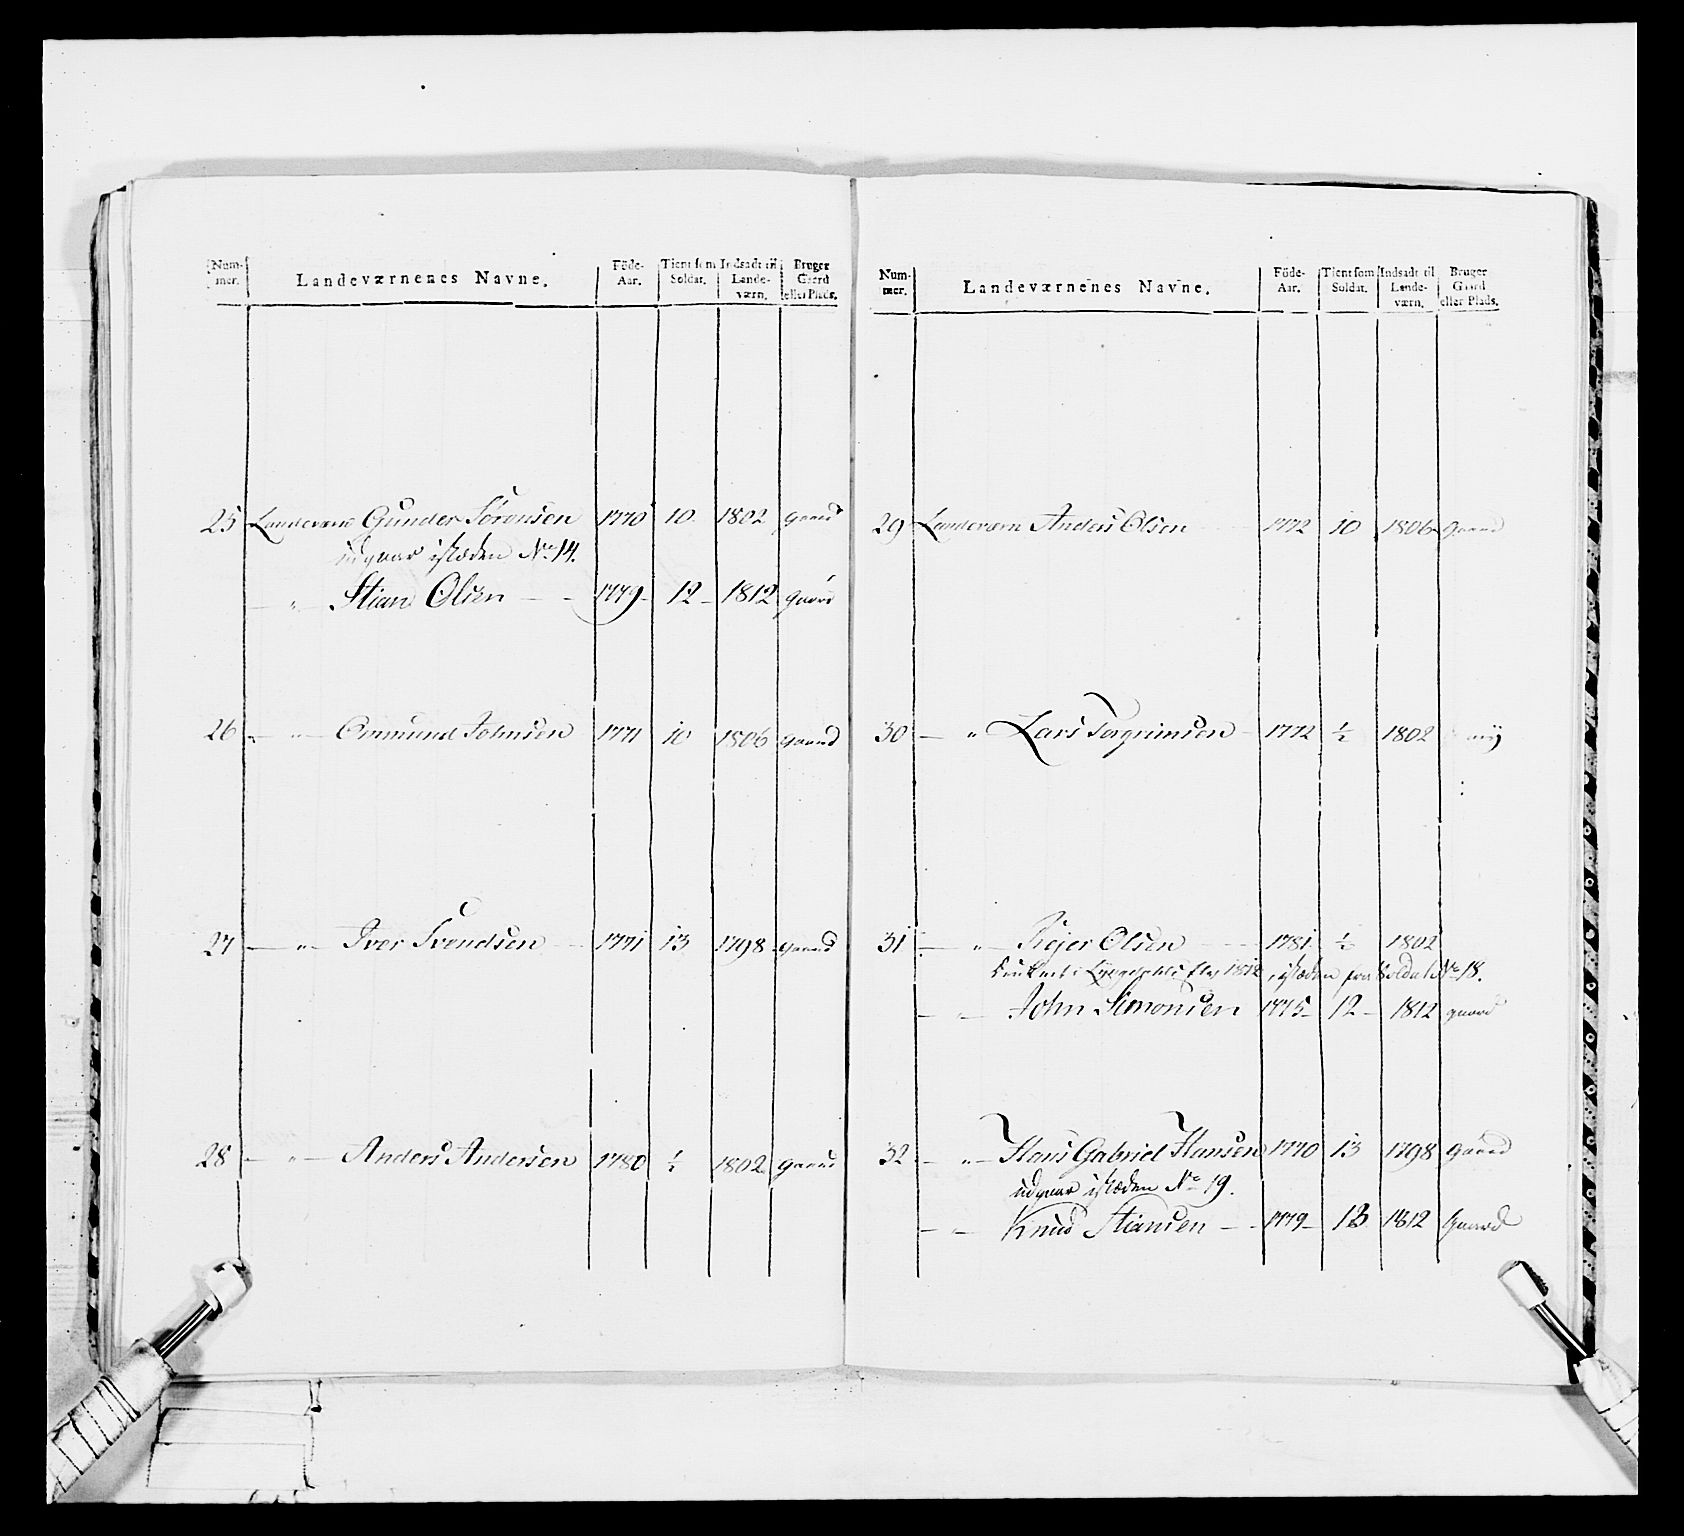 Num-mer. Landeværnenes Navne. Föde-Aar. Tient som Soldat. Indsadt til Lande-værn. Bruger Gaard eller Plads.
25 Landeværn Gunder Sörensen 1770 10 1802 gaard
udgaar istæden No 14.
— " — Stian Olsen — - 1779 - 12 - 1812 gaard
26 - " — Ommund Johnsen 1771 10 1806 gaard
27 — " — Iver Svendsen - 1771 13 1798 gaard
28 — " — Anders Andersen 1780 ½ 1802 gaard
Num-mer. Landeværnenes Navne. Föde-Aar. Tient som Soldat. Indsadt til Lande-værn. Bruger Gaard eller Plads.
29 Landeværn Anders Olsen 1772 10 1806 gaard
30 — " Lars Torgrimsen - 1772 ½ 1802
31 — " — Reier Olsen 1781 ½ 1802
1812, istæden fra Soldat No 18.
— " — John Simonsen 1775 - 12 - 1812 gaard
32 — " — Hans Gabriel Hansen 1770 13 1798 gaard
udgaar istæden No 19.
— " — Knud Stiansen — - 1779 - 13 1812 Gaard